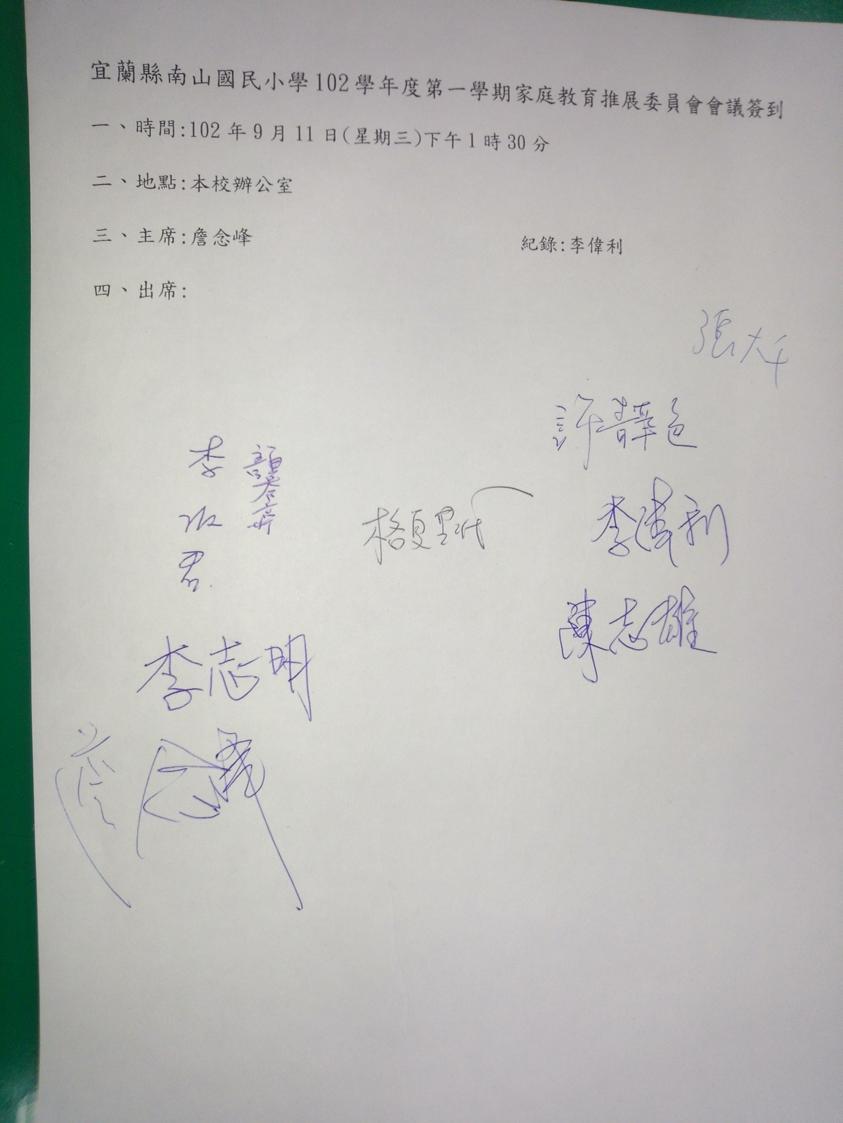 宜蘭縣南山國民小學102學年度第一學期家庭教育推展委員會會議簽到
一、時間:102年9月11日(星期三)下午1時30分
二、地點:本校辦公室
三、主席:詹念峰 紀錄:李偉利
四、出席:
張大千
許
李偉利
陳志雄
格夏里代
李 君
李志明